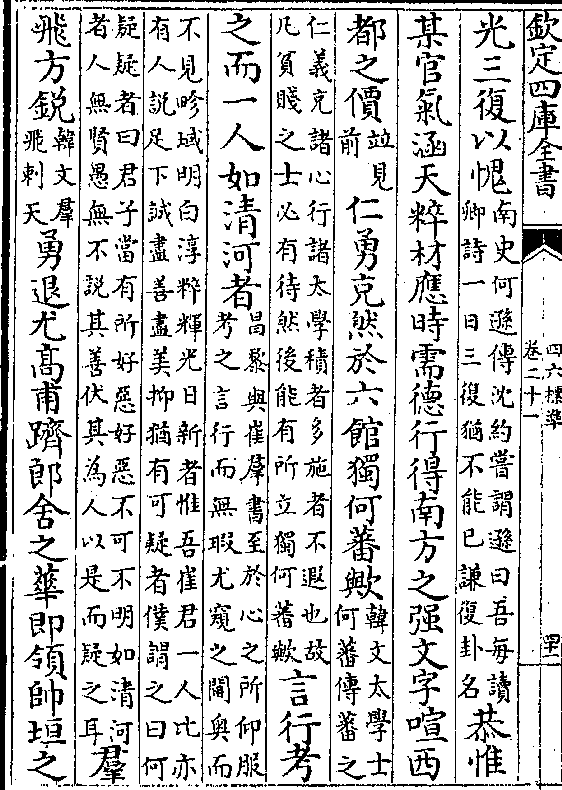 欽定四庫全書
四六標準
卷二十一
光三復以愧
南史何遜傳沈約嘗謂遜曰吾每讀
卿詩一日三復猶不能已謙復卦名
恭惟
某官氣涵天粹材應時需德行得南方之强文字喧西
都之價
並見
前
仁勇充然於六館獨何蕃歟
韓文太學士
何蕃傳蕃之
仁義充諸心行諸太學積者多施者不遐也故
凡貧賤之士必有待然後能有所立獨何蕃歟
言行考
之而一人如清河者
昌黎與崔羣書至於心之所仰服
考之言行而無瑕尤窺之閫奥而
不見畛域明白淳粹輝光日新者惟吾崔君一人比亦
有人說足下誠盡善盡美抑猶有可疑者僕謂之曰何
疑疑者曰君子當有所好惡好惡不可不明如清河
者人無賢愚無不說其善伏其為人以是而疑之耳
羣
飛方鋭
韓文羣
飛刺天
勇退尤髙甫躋郎舍之華即領帥垣之